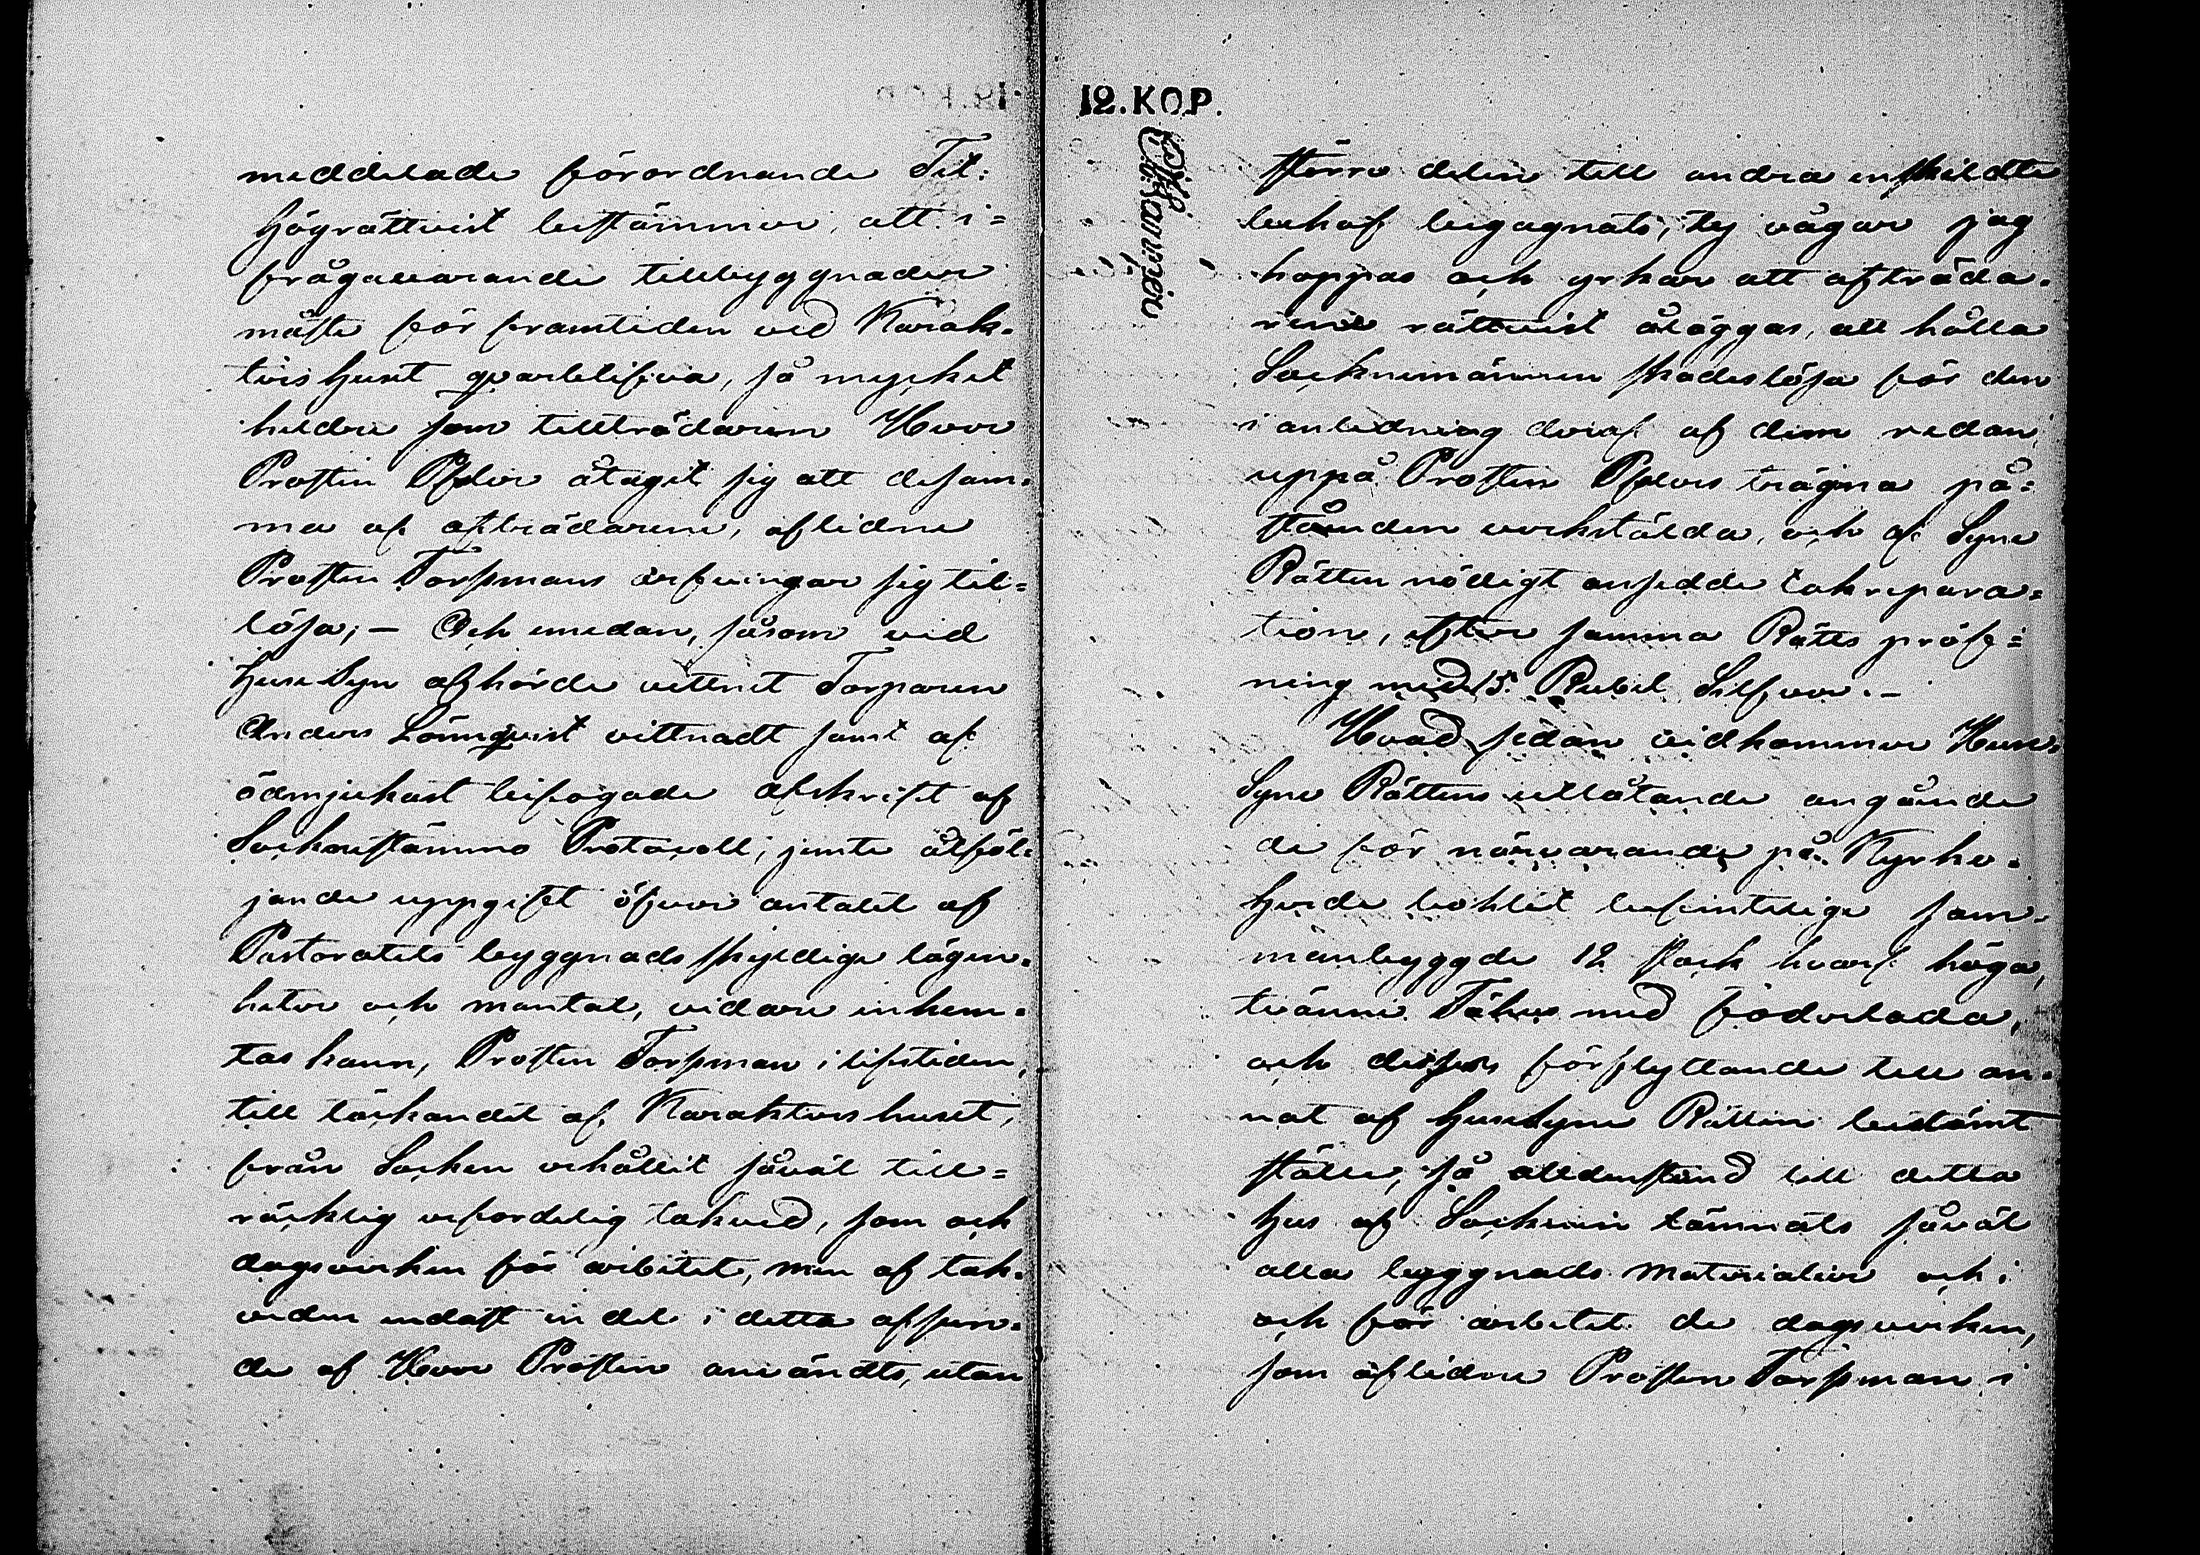 meddelade förordnande Til:
högrättvist bestämmer, att i=
frågavarande tillbyggnader
måste för framtiden vid Karak=
tershuset qvarblifva, så mycket
heldre som tillträdaren Herr
Prosten Pfaler åtagit sig att desam=
ma af afträdarene, aflidne
Prosten Forsmans arfvingar sig til=
lösa; — Och emedan, såsom vid
HuseSyn afhörde vittnet Torparen
Anders Lönnqvist vittnadt samt af
ödmjukast bifogade afskrift af
Sockenstämmo Protocoll, jemte åtföl=
jande uppgift öfver antalet af
Pastoratets byggnadsskyldige lägen=
heter och mantal, vidare inhem=
tas kann, Prosten Forsman i lifstiden,
till täckandet af Karaktershuset,
från Socken erhållit såväl till=
räcklig erforderlig takved, som och
dagsverken för arbetet, men af tak=
veden endast en del i detta afseen=
de af Herr Prosten användts, utan
12. KOP.
större delen till andra enskildte
behof begagnats; ty vågar jag
hoppas och yrkar att afträda=
rene rättvist åläggas, att hålla
Socknemännen skadeslösa för den
i anledning deraf af dem redan
uppå Prosten Pfalers trägna på=
ståenden verkstälda, och af Syne
Rätten nödigt ansedde takrepara=
tion, efter samma Rätts pröf=
ning med 15. Rubel Silfver. —
Hvad sedan vidkommer Huse=
Syne Rättens utlåtande angående
de för närvarande på Kyrko=
herde bohlet befintelige sam=
manbyggde 12 stock hvarf höga,
tvänne Fähus med foderlada,
och dessas förflyttande till an=
nat af HuseSyne Rätten bestämt
ställe, så alldenstund till detta
hus af Socknen lämnats såväl
alla byggnads materialier och i
och för arbetet de dagsverken,
som aflidne Prosten Forsman i